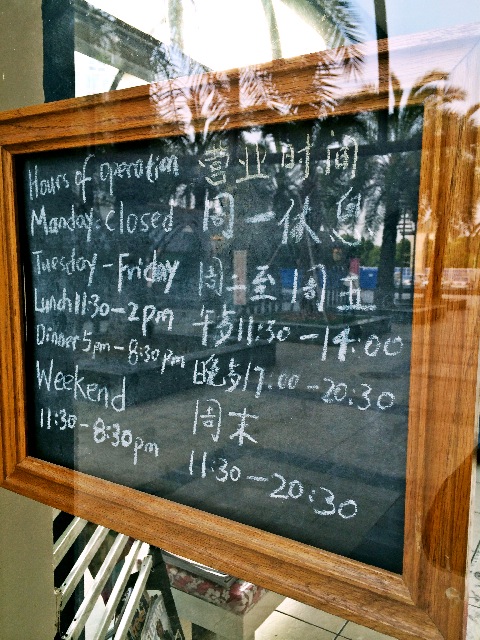 Hours of operation
Manday: closed
Tuesday-Friday
Lunch 11:30-2pm
Dinner 5pm-8:30pm
Weekend
11:30-8:30pm
营业时间
周一休息
周二至周五
午歺11:30-14:00
晚歺17:00-20:30
周末
11:30-20:30